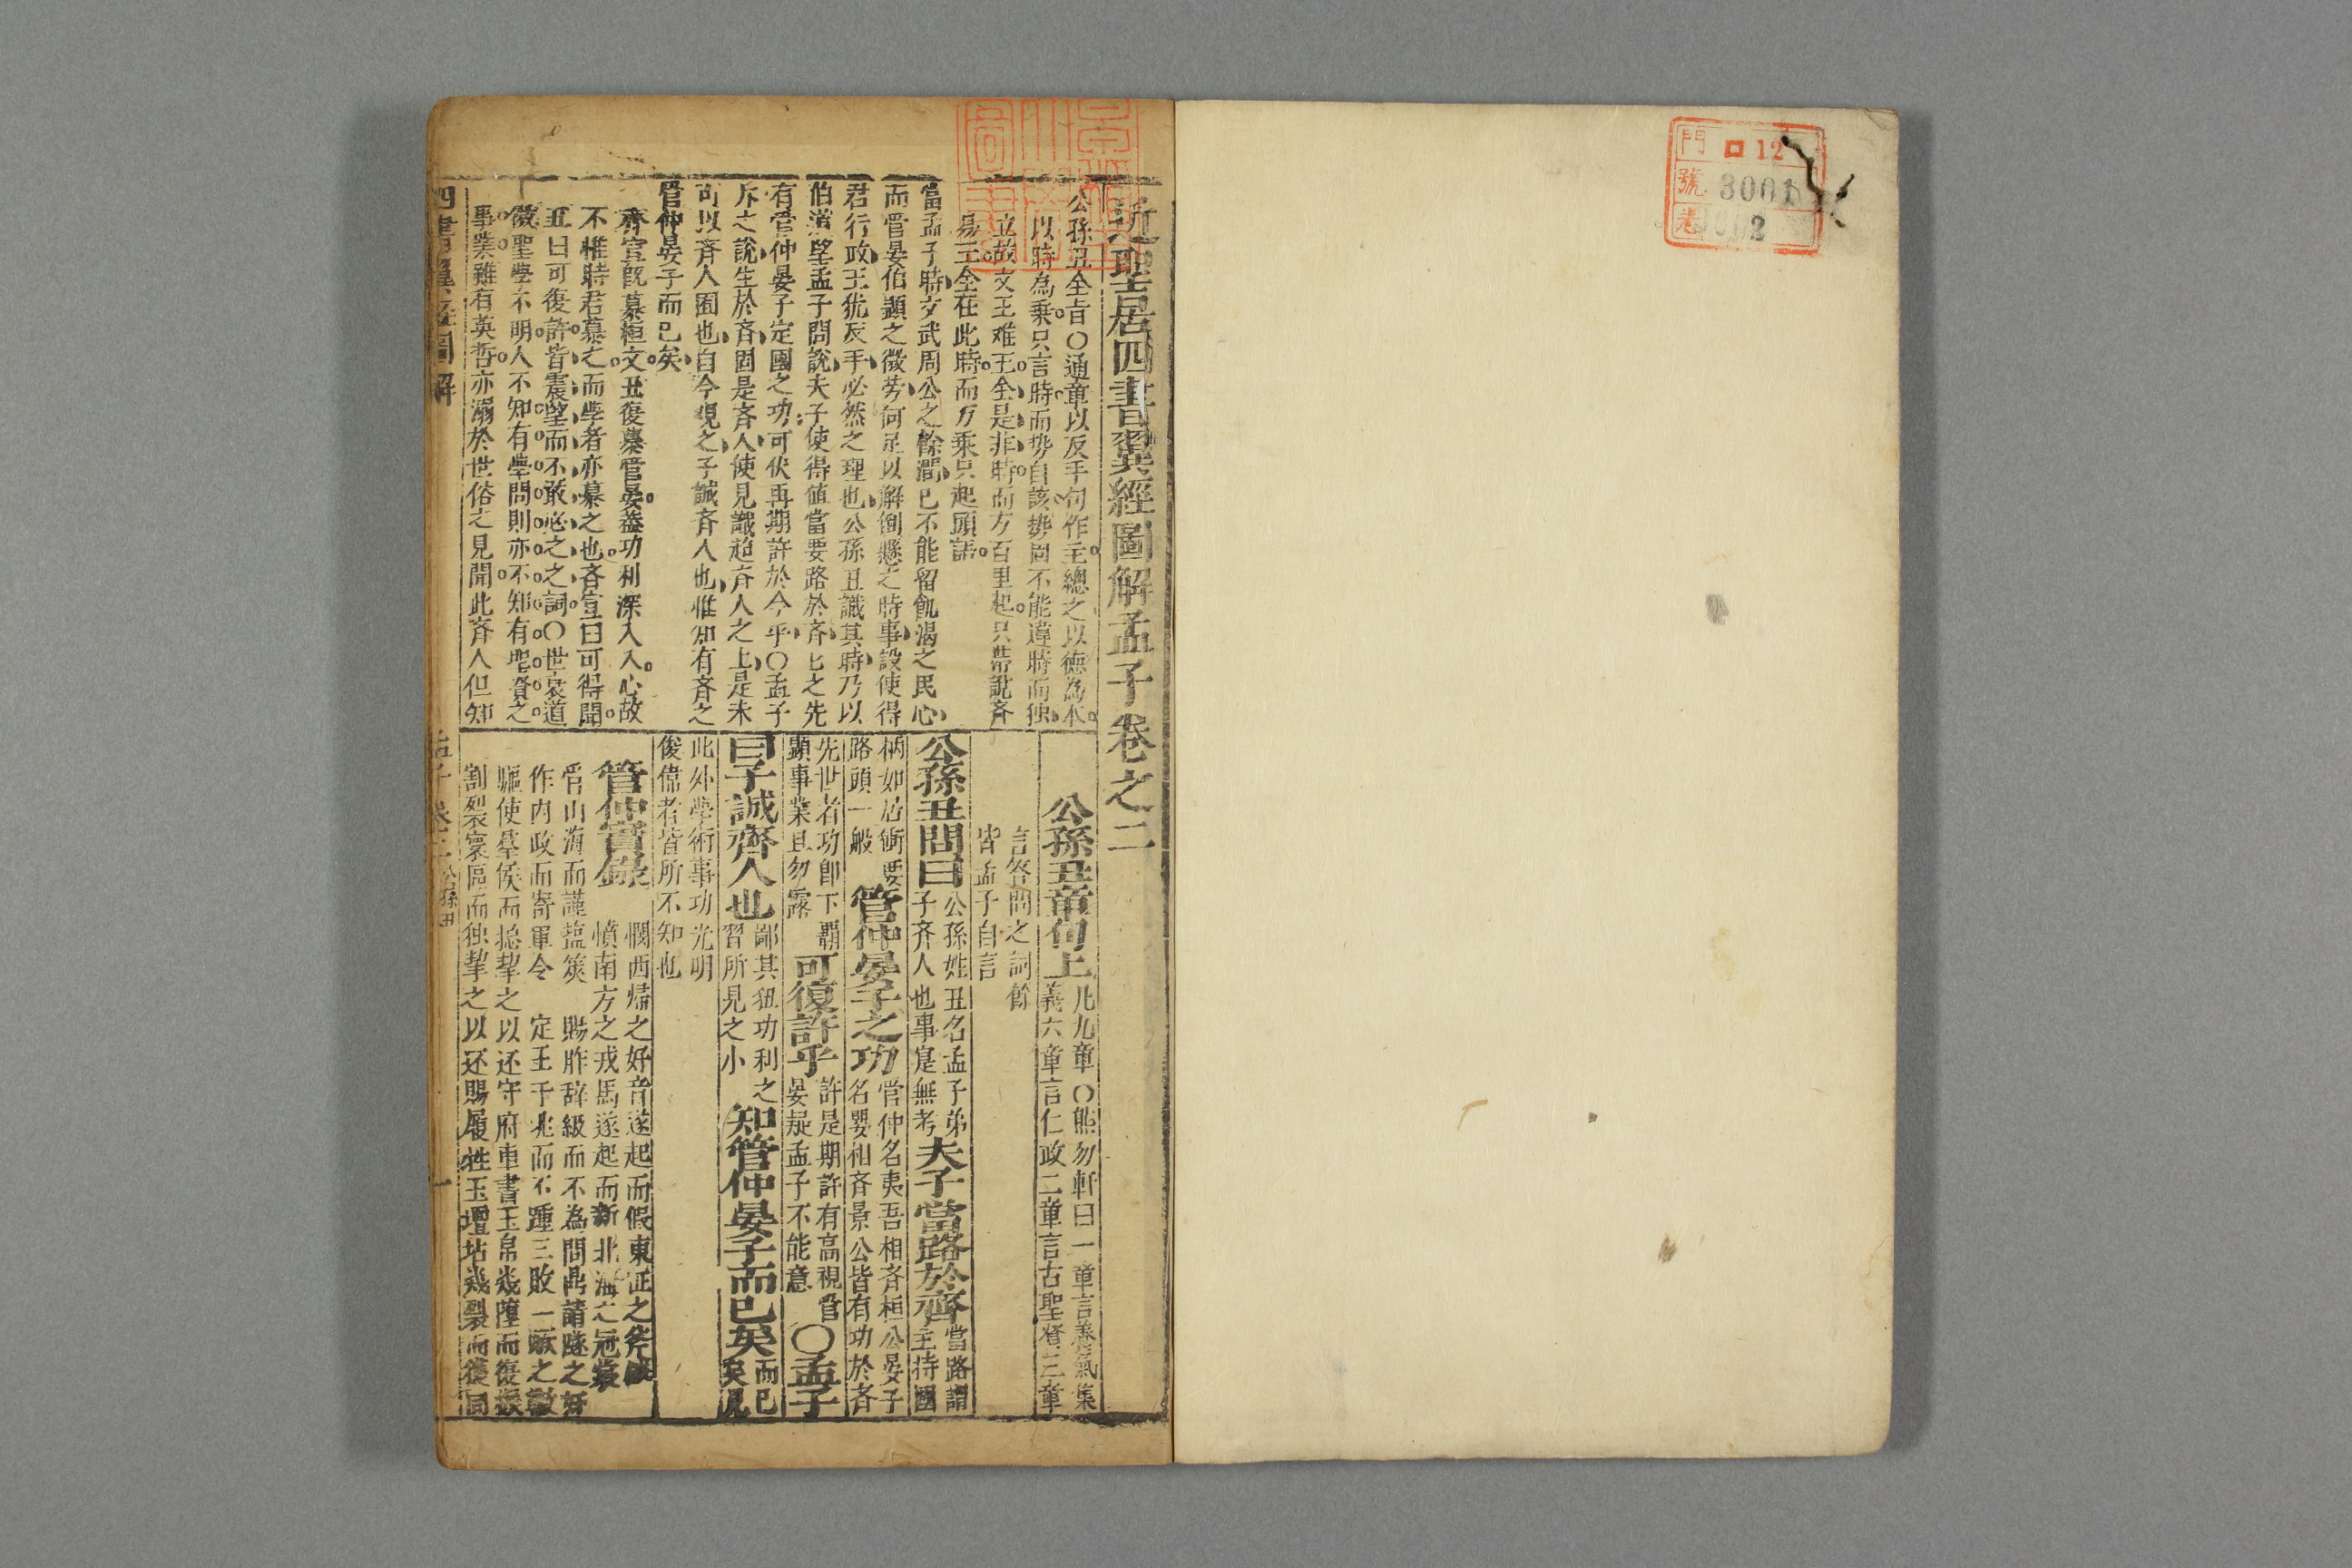 門 ロ12
號 3001
卷 2
近聖居四書翼經圖解孟子卷之二
公孫丑全旨○通章以反手句作主總之以德為本
以時為乘只言時而势自該势固不能違時而独
立故文王难王全是非時而方百里起只帶說齐
易王全在此時而万乘只起頭語
當孟子時文武周公之餘澤已不能留飢渴之民心
而管晏伯顕之微劳何足以解倒懸之時事設使得
君行政王犹反手必然之理也公孫丑識其時乃以
伯道望孟子問說夫子使得值當要路於斉匕之先
有管仲晏子定國之功可伏再期許於今乎○孟子
斥之說生於斉固是斉人使見識超斉人之上是未
可以斉人囿也自今覌之子誠斉人也惟知有斉之
管仲晏子而已矣
齐宣既慕桓文丑復慕管晏盖功利深入人心故
不惟時君慕之而學者亦慕之也斉宣曰可得聞
丑曰可復許皆震望而不敢必之之詞○世衰道
微聖學不明人不知有學問則亦不知有聖賢之
事業雖有英哲亦溺於世俗之見聞此斉人但知
公孫丑章句上 凡九章○熊勿軒曰一章言養氣集
義六章言仁政二章言古聖賢三章
言答問之詞餘
皆孟子自言
公孫丑問曰 公孫姓丑名孟子弟
子齐人也事寔無考 夫子當路於齊 當路謂
主持國
柄如居衝要
路頭一般 管仲晏子之功 管仲名夷吾相斉桓公晏子
名嬰相斉景公皆有功於斉
先世者功即下覇
顕事業且勿露 可復許乎 許是期許有高視管
晏疑孟子不能意 ○孟子
曰子誠齊人也 鄙其狃功利之
習所見之小 知管仲晏子而已矣 而已
矣見
此外學術事功光明
俊偉者皆所不知也
管仲實錄 憫西歸之好音遂起而假東征之斧
憤南方之戎馬遂起而新北海之冠裳
管山海而謹塩筴 賜胙辞級而不為問鼎請隧之奸
作内政而寄軍令 定王于兆而不踵三敗一
驅使羣侯而捴挈之以还守府車書玉帛幾墮而復振
割裂寰區而独挈之以还賜履牲玉壇坫幾裂而復同
四書翼經圖解 孟子 卷二 公孫丑 一